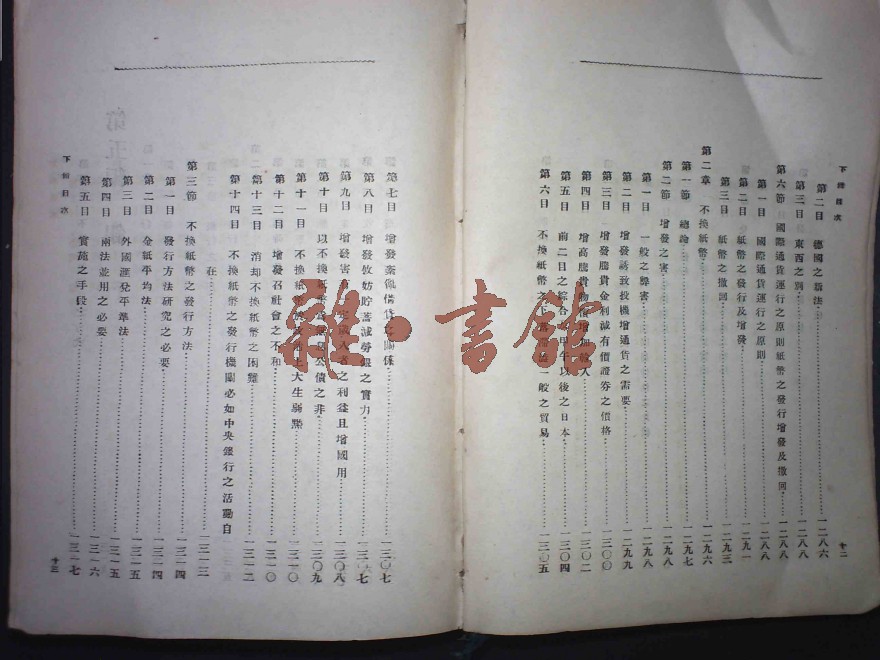 下冊目次
第二目 德國之新法 一二八六
第三目 東西之別 一二八八
第六節 國際通貨運行之原則紙幣之發行增發及撤回 一二八八
第一目 國際通貨運行之原則 一二八八
第二目 紙幣之發行及增發 一二九一
第三目 紙幣之撤回 一二九三
第二章 不換紙幣 一二九六
第一節 總論 一二九七
第二節 增發之害 一二九八
第一目 一般之弊害 一二九八
第二目 增發誘致投機增通貨之需要 一二九九
第三目 增發騰貴金利減有價證券之價格 一三〇〇
第四目 增高騰貴物價增加收入 一三〇二
第五目 前二目之綜合 甲午以後之日本 一三〇四
第六目 不換紙幣之下 一般之貿易 一三〇五
十二
第七目 增發 之關係 一三〇七
第八目 增發攸妨貯蓄減勞銀之實力 一三〇七
第九目 增發害 之利益且增國用 一三〇八
第十目 以不換紙 公債之非 一三〇九
第十一目 不換紙幣 大生弱點 一三一〇
第十二目 增發召社會之不和 一三一〇
第十三目 消却不換紙幣之困難 一三一二
第十四目 不換紙幣之發行機關必如中央銀行之活動自
在 一三一三
第三節 不換紙幣之發行方法 一三一四
第一目 發行方法研究之必要 一三一四
第二目 金紙平均法 一三一五
第三目 外國滙兌平準法 一三一五
第四目 兩法並用之必要 一三一六
第五目 實施之手段 一三一七
下冊目次
十三
雜·書館